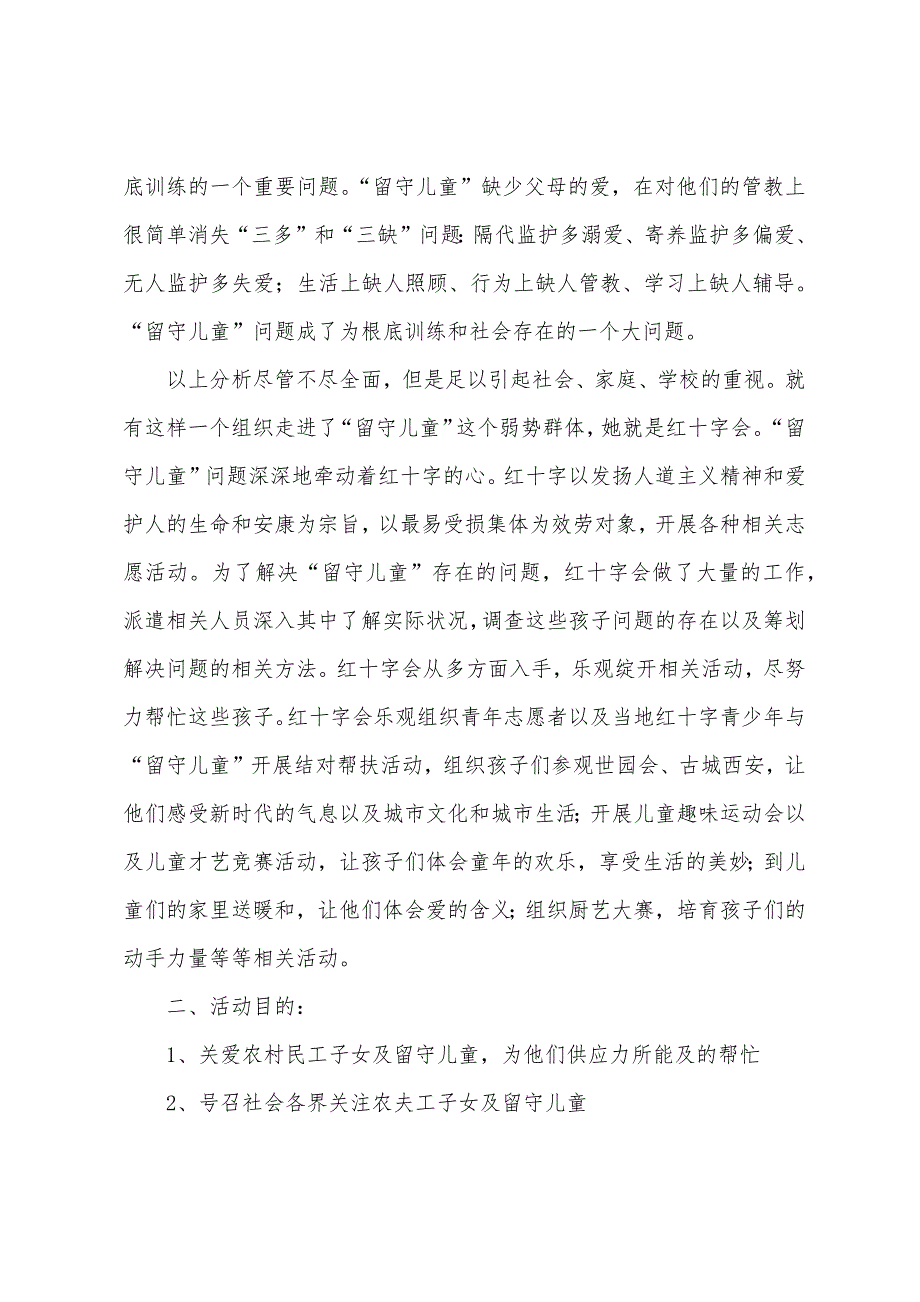 底训练的一个重要问题。“留守儿童”缺少父母的爱，在对他们的管教上
很简单消失“三多”和“三缺”问题：隔代监护多溺爱、寄养监护多偏爱、
无人监护多失爱；生活上缺人照顾、行为上缺人管教、学习上缺人辅导。
“留守儿童”问题成了为根底训练和社会存在的一个大问题。
以上分析尽管不尽全面，但是足以引起社会、家庭、学校的重视。就
有这样一个组织走进了“留守儿童”这个弱势群体，她就是红十字会。“留
守儿童”问题深深地牵动着红十字的心。红十字以发扬人道主义精神和爱
护人的生命和安康为宗旨，以最易受损集体为效劳对象，开展各种相关志
愿活动。为了解决“留守儿童”存在的问题，红十字会做了大量的工作，
派遣相关人员深入其中了解实际状况，调查这些孩子问题的存在以及筹划
解决问题的相关方法。红十字会从多方面入手，乐观绽开相关活动，尽努
力帮忙这些孩子。红十字会乐观组织青年志愿者以及当地红十字青少年与
“留守儿童”开展结对帮扶活动，组织孩子们参观世园会、古城西安，让
他们感受新时代的气息以及城市文化和城市生活；开展儿童趣味运动会以
及儿童才艺竞赛活动，让孩子们体会童年的欢乐，享受生活的美妙；到儿
童们的家里送暖和，让他们体会爱的含义；组织厨艺大赛，培育孩子们的
动手力量等等相关活动。
二、活动目的：
1、关爱农村民工子女及留守儿童，为他们供应力所能及的帮忙
2、号召社会各界关注农夫工子女及留守儿童